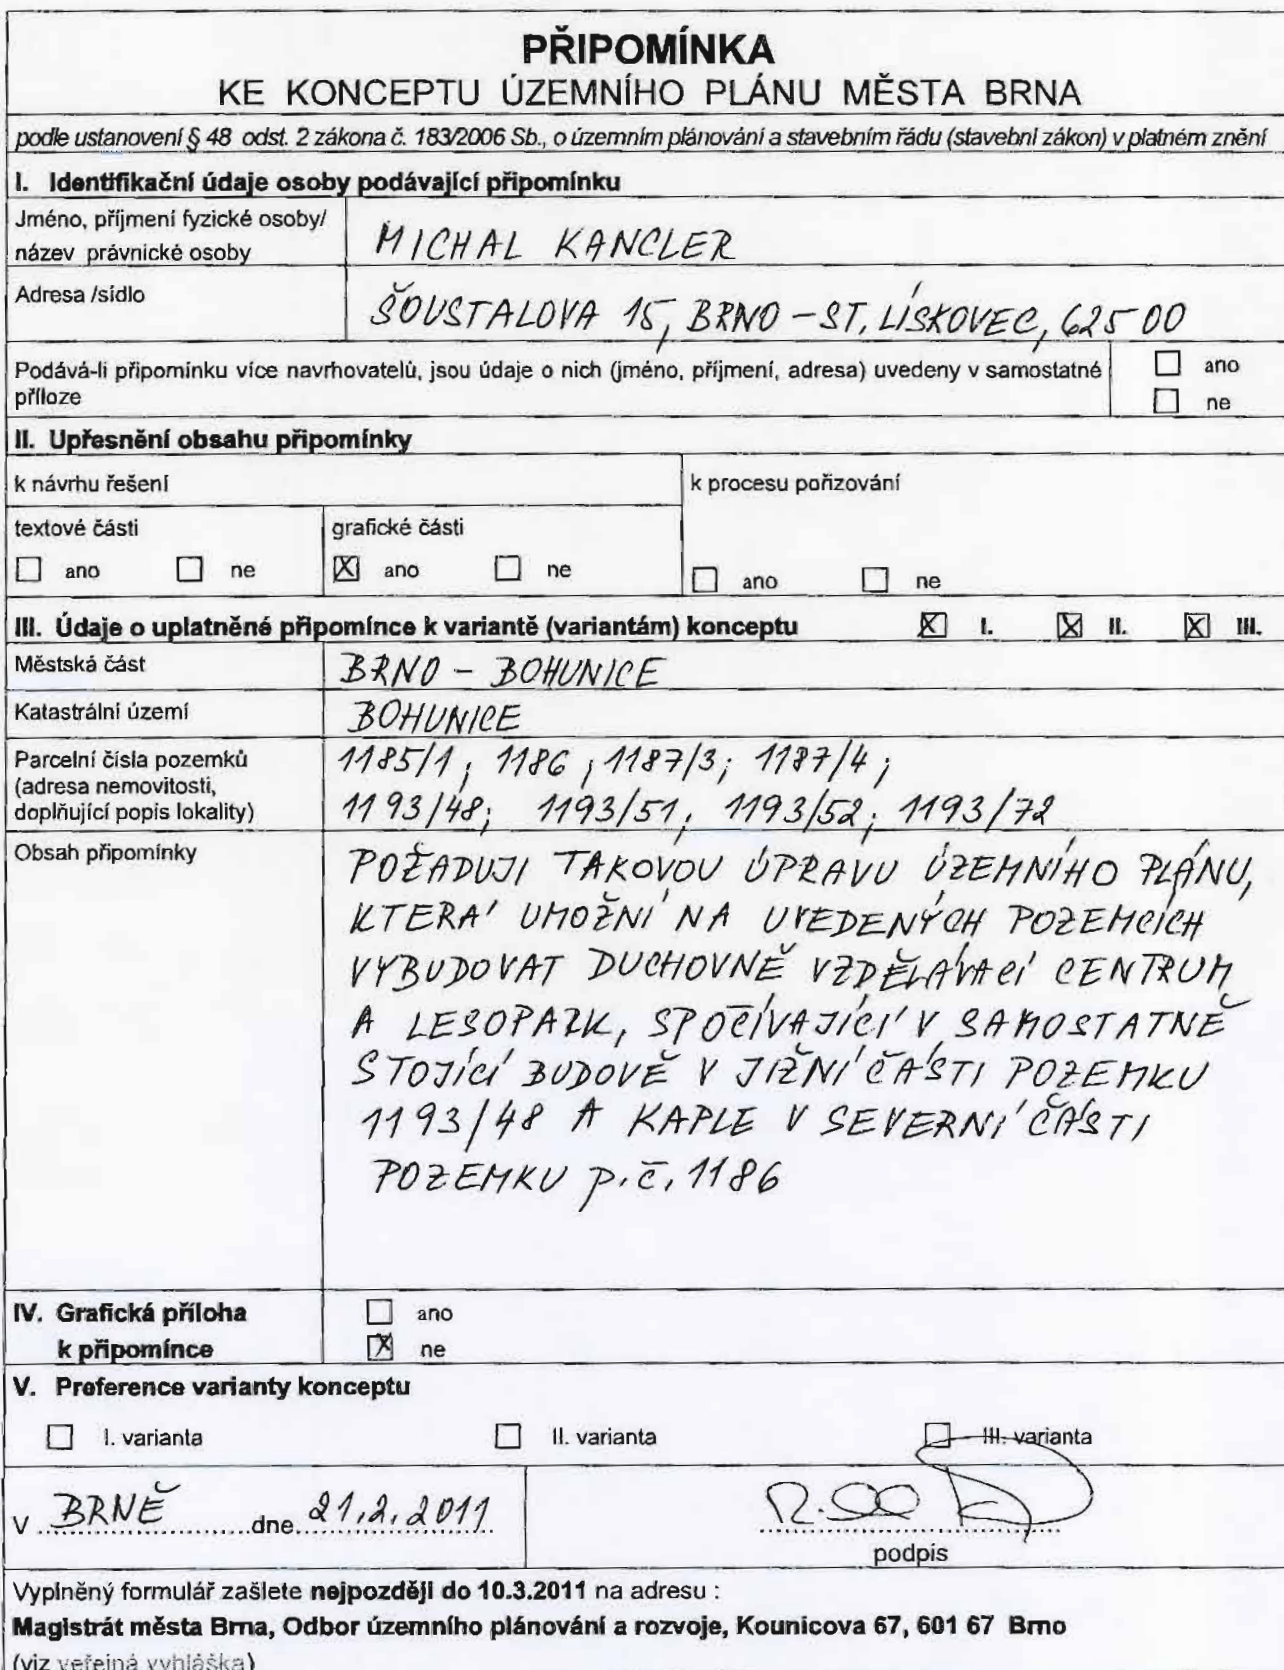 PŘIPOMÍNKA
KE KONCEPTU ÚZEMNÍHO PLÁNU MĚSTA BRNA
podle ustanovení § 48 odst. 2 zákona č. 183/2006 Sb., o územním plánování a stavebním řádu (stavební zákon) v platném znění
I. Identifikační údaje osoby podávající připomínku
Jméno, příjmení fyzické osoby/
název právnické osoby
MICHAL KANCLER
Adresa /sídlo
ŠOUSTALOVA 15, BRNO – ST. LÍSKOVEC, 625 00
Podává-li připomínku více navrhovatelů, jsou údaje o nich (jméno, příjmení, adresa) uvedeny v samostatné
příloze
ano
ne
II. Upřesnění obsahu připomínky
k návrhu řešení
k procesu pořizování
textové části
grafické části
ano ne
X ano ne
ano ne
III. Údaje o uplatněné připomínce k variantě (variantám) konceptu X I. X II. X III.
Městská část
BRNO – BOHUNICE
Katastrální území
BOHUNICE
Parcelní čísla pozemků
(adresa nemovitosti,
doplňující popis lokality)
1185/1; 1186; 1187/3; 1187/4;
1193/48; 1193/51; 1193/52; 1193/72
Obsah připomínky
POŽADUJI TAKOVOU ÚPRAVU ÚZEMNÍHO PLÁNU,
KTERÁ UMOŽNÍ NA UVEDENÝCH POZEMCÍCH
VYBUDOVAT DUCHOVNĚ VZDĚLÁVACÍ CENTRUM
A LESOPARK, SPOČÍVAJÍCÍ V SAMOSTATNĚ
STOJÍCÍ BUDOVĚ V JIŽNÍ ČÁSTI POZEMKU
1193/48 A KAPLE V SEVERNÍ ČÁSTI
POZEMKU p.č. 1186
IV. Grafická příloha
k připomínce
ano
X ne
V. Preference varianty konceptu
I. varianta II. varianta III. varianta
V BRNĚ dne 21.2.2011
podpis
Vyplněný formulář zašlete nejpozději do 10.3.2011 na adresu :
Magistrát města Brna, Odbor územního plánování a rozvoje, Kounicova 67, 601 67 Brno
(viz veřejná vyhláška)